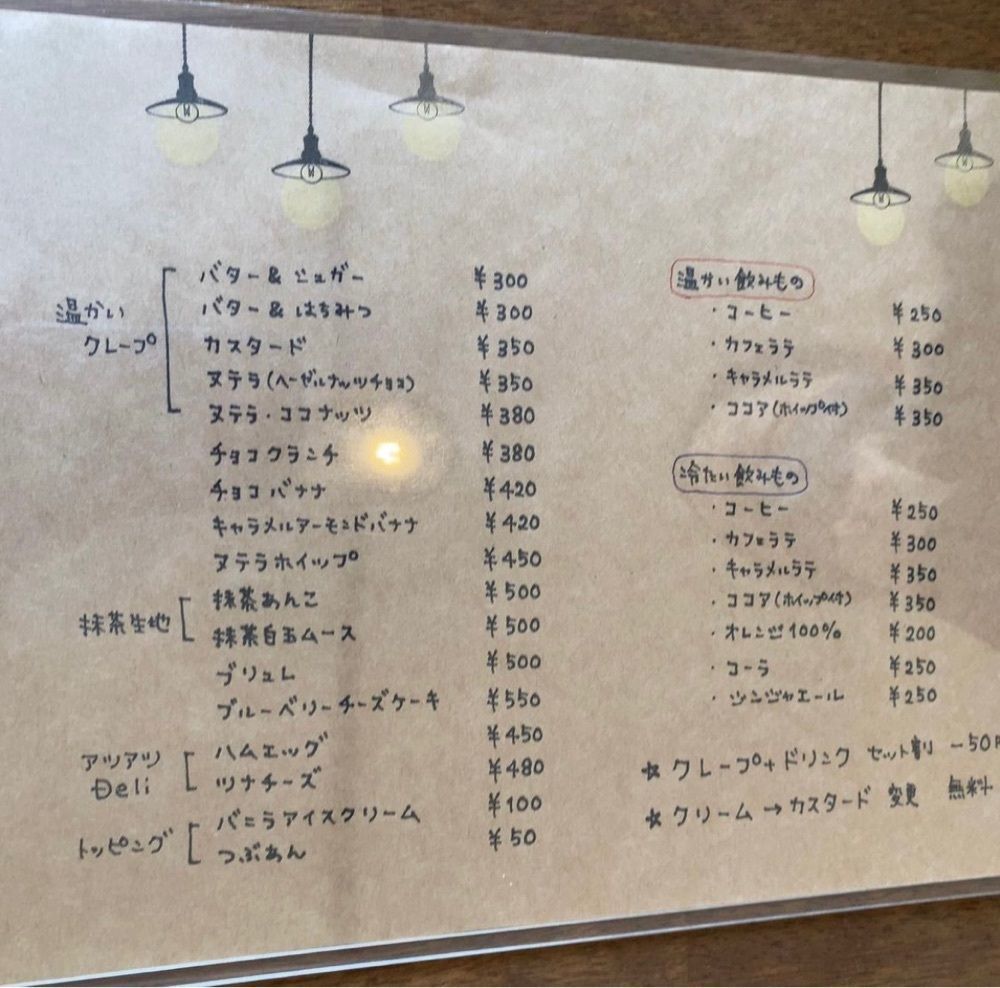 温かい
クレープ
バター&シュガー ¥300
バター&はちみつ ¥300
カスタード ¥350
ヌテラ(ヘーゼルナッツチョコ) ¥350
ヌテラ・ココナッツ ¥380
チョコクランチ ¥380
チョコバナナ ¥420
キャラメルアーモンドバナナ ¥420
ヌテラホイップ ¥450
抹茶生地
抹茶あんこ ¥500
抹茶白玉ムース ¥500
ブリュレ ¥500
ブルーベリーチーズケーキ ¥550
アツアツ
Deli
ハムエッグ ¥450
ツナチーズ ¥480
トッピング
バニラアイスクリーム ¥100
つぶあん ¥50
温かい飲みもの
・コーヒー ¥250
・カフェラテ ¥300
・キャラメルラテ ¥350
・ココア(ホイップ付) ¥350
冷たい飲みもの
・コーヒー ¥250
・カフェラテ ¥300
・キャラメルラテ ¥350
・ココア(ホイップ付) ¥350
・オレンジ100% ¥200
・コーラ ¥250
・ジンジャエール ¥250
☆クレープ+ドリンク セット割 -50
☆クリーム→カスタード 変更 無料